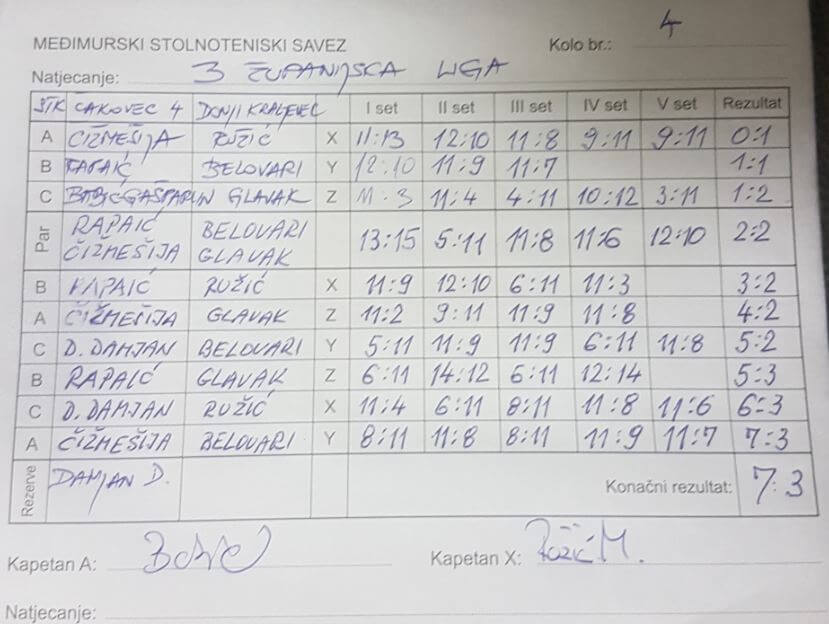 4
MEĐIMURSKI STOLNOTENISKI SAVEZ Kolo br.:
Natjecanje: 3 ŽUPANIJSKA LIGA
STK ČAKOVEC 4 DONJI KRALJEVEC I set II set III set IV set V set Rezultat
A ČIŽMEŠIJA RUŽIĆ X 11:13 12:10 11:8 9:11 9:11 0:1
B RAPAIĆ BELOVARI Y 12:10 11:9 11:7 1:1
C GAŠPARLIN GLAVAK Z 11:3 11:4 4:11 10:12 3:11 1:2
Par RAPAIĆ BELOVARI
ČIŽMEŠIJA GLAVAK 13:15 5:11 11:8 11:6 12:10 2:2
B RAPAIĆ RUŽIĆ X 11:9 12:10 6:11 11:3 3:2
A ČIŽMEŠIJA GLAVAK Z 11:2 9:11 11:9 11:8 4:2
C D. DAMJAN BELOVARI Y 5:11 11:9 11:9 6:11 11:8 5:2
B RAPAIĆ GLAVAK Z 6:11 14:12 6:11 12:14 5:3
C D. DAMJAN RUŽIĆ X 11:4 6:11 8:11 11:8 11:6 6:3
A ČIŽMEŠIJA BELOVARI Y 8:11 11:8 8:11 11:9 11:7 7:3
Rezerve DAMJAN D. Konačni rezultat: 7:3
Kapetan A: Kapetan X: Ružić M.
Natjecanje: